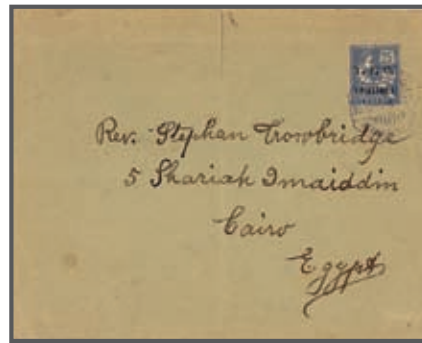 Rev. Stephan Trowbridge
5 Shariah Imaiddin
Cairo
Egypt